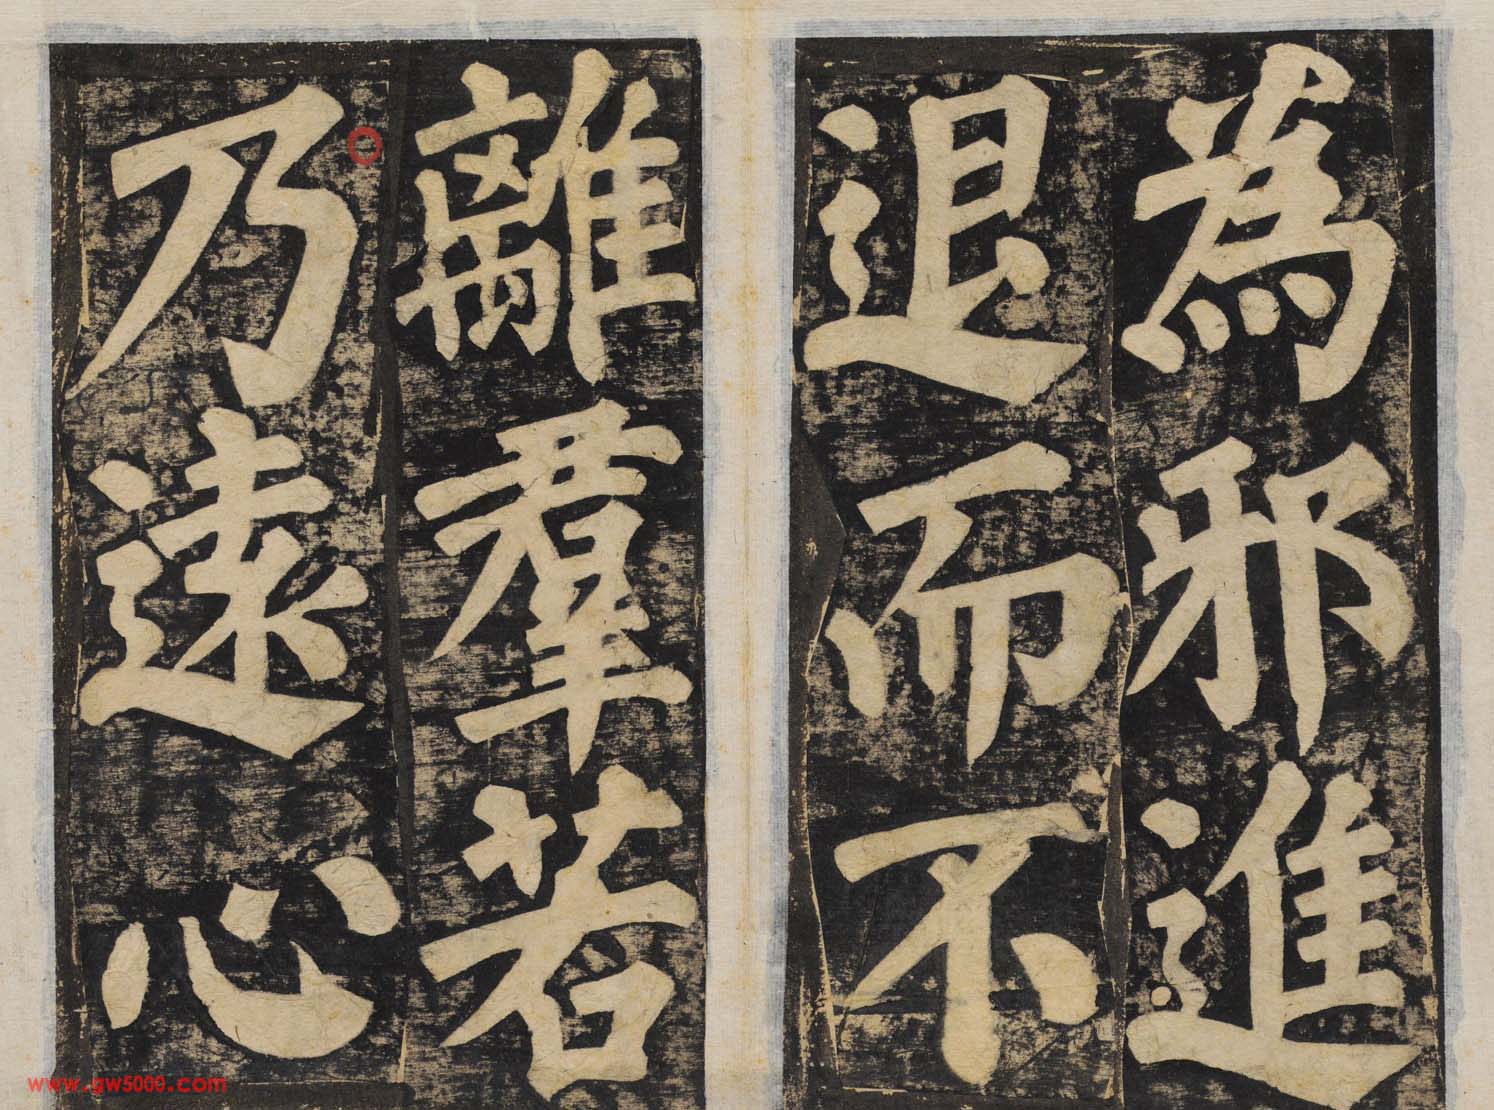 為邪進
退而不
離羣若
乃遠心
www.gw5000.com